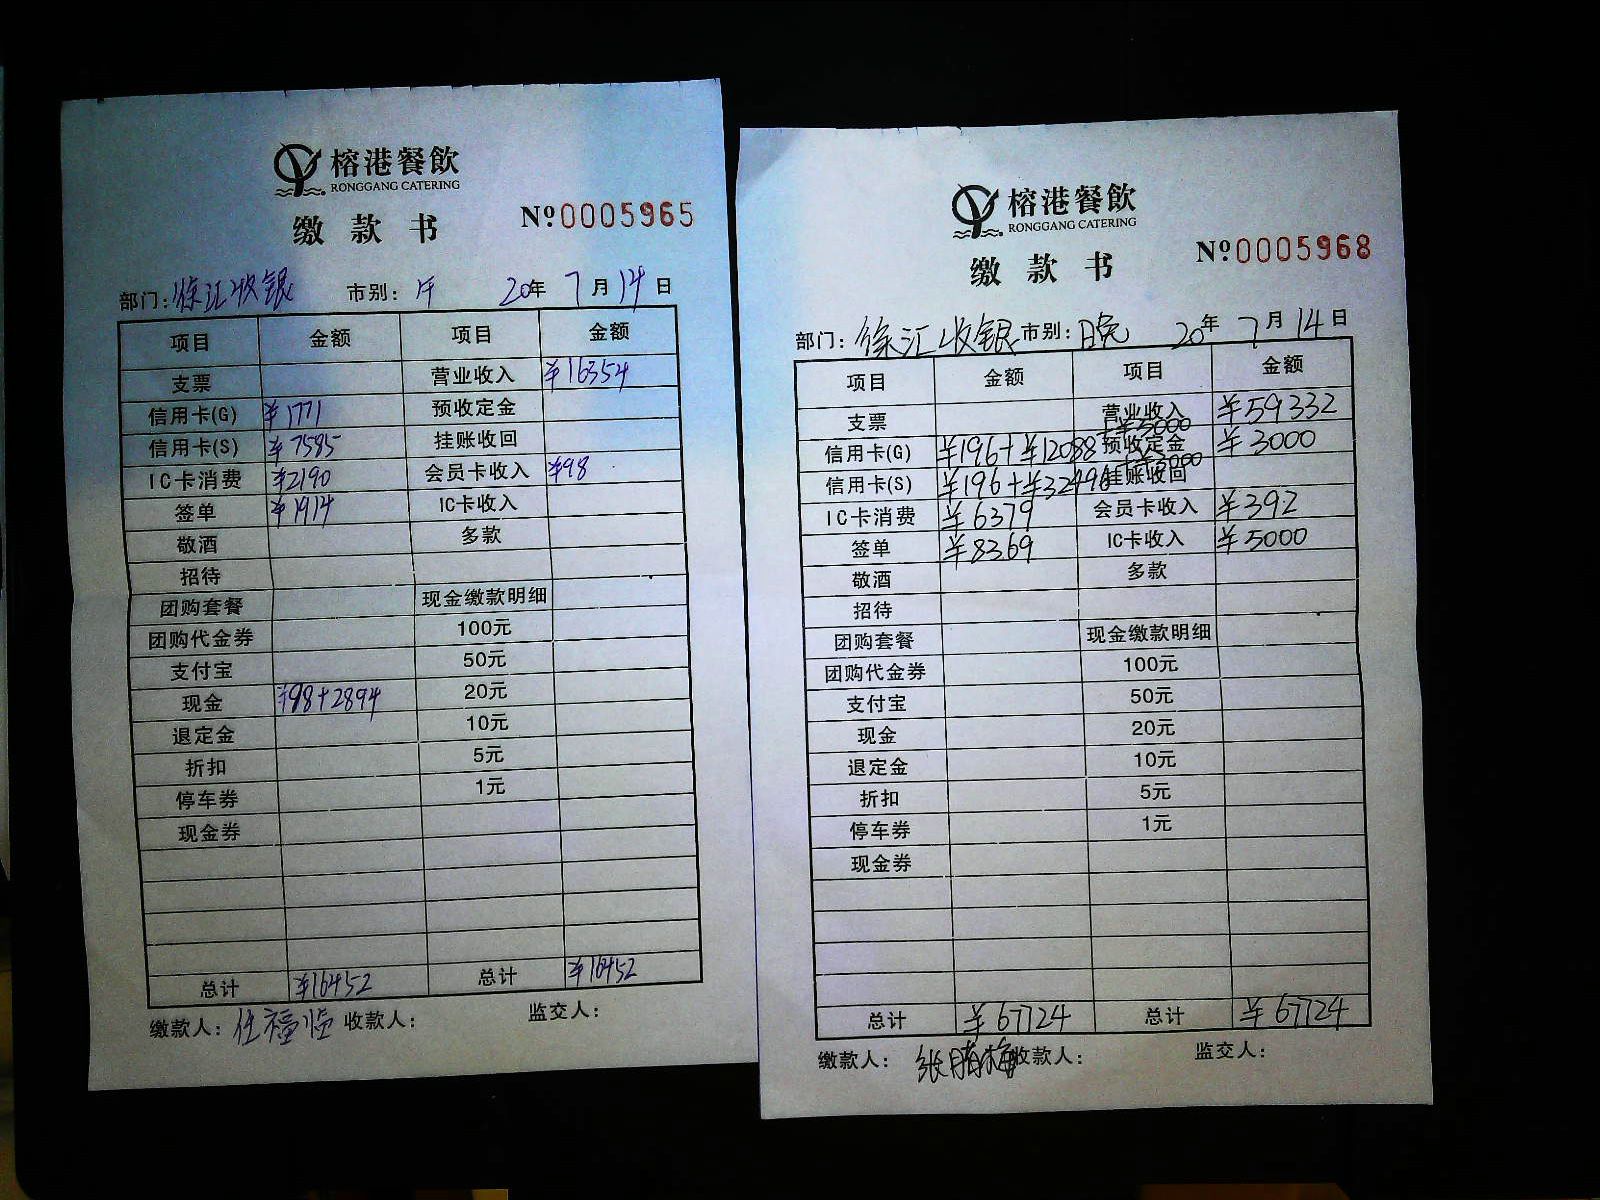 榕港餐飲
RONGGANG CATERING
缴款书
Nº0005965
部门: 徐汇收银 市别: 午 20年 7月 14日
项目 金额 项目 金额
支票 营业收入 ¥16354
信用卡(G) ¥1771 预收定金
信用卡(S) ¥7585 挂账收回
IC卡消费 ¥2190 会员卡收入 ¥98
签单 ¥1914 IC卡收入
敬酒 多款
招待
团购套餐 现金缴款明细
团购代金券 100元
支付宝 50元
现金 ¥98+2894 20元
退定金 10元
折扣 5元
停车券 1元
现金券
总计 ¥16452 总计 ¥16452
缴款人: 任福临 收款人: 监交人:
榕港餐飲
RONGGANG CATERING
缴款书
Nº0005968
部门: 徐汇收银 市别: 晚 20年 7月 14日
项目 金额 项目 金额
支票 营业收入 ¥59332
信用卡(G) ¥196+¥12088+¥5000 预收定金 ¥3000
信用卡(S) ¥196+¥32496+¥3000 挂账收回
IC卡消费 ¥6379 会员卡收入 ¥392
签单 ¥8369 IC卡收入 ¥5000
敬酒 多款
招待
团购套餐 现金缴款明细
团购代金券 100元
支付宝 50元
现金 20元
退定金 10元
折扣 5元
停车券 1元
现金券
总计 ¥67724 总计 ¥67724
缴款人: 张腊梅 收款人: 监交人: